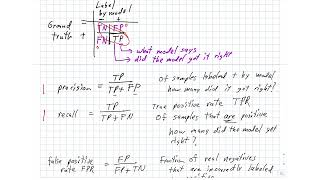 Label
by model
Ground - +
truth - TN FP
+ FN TP
what model says
did the model get it right?
precision = TP / TP + FP Of samples labeled + by model
how many did it get right?
recall = TP / TP + FN True positive rate TPR
Of samples that are positive
how many did the model get
right?
false positive rate FPR = FP / FP + TN Fraction of real negatives
that are incorrectly labeled